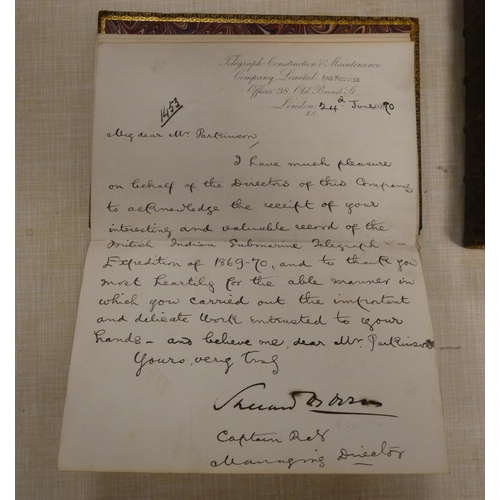 Telegraph Construction & Maintenance
Company Limited.
Offices 38, Old Broad St.
London, 24th June 1870
E.C.
1453
My dear Mr. Parkinson,
I have much pleasure
on behalf of the Directors of this Company
to acknowledge the receipt of your
interesting and valuable record of the
British Indian Submarine Telegraph
Expedition of 1869-70, and to thank you
most heartily for the able manner in
which you carried out the important
and delicate work entrusted to your
hands - and believe me, dear Mr. Parkinson
Yours, very truly
Sherard Osborn
Captain R.N
Managing Director